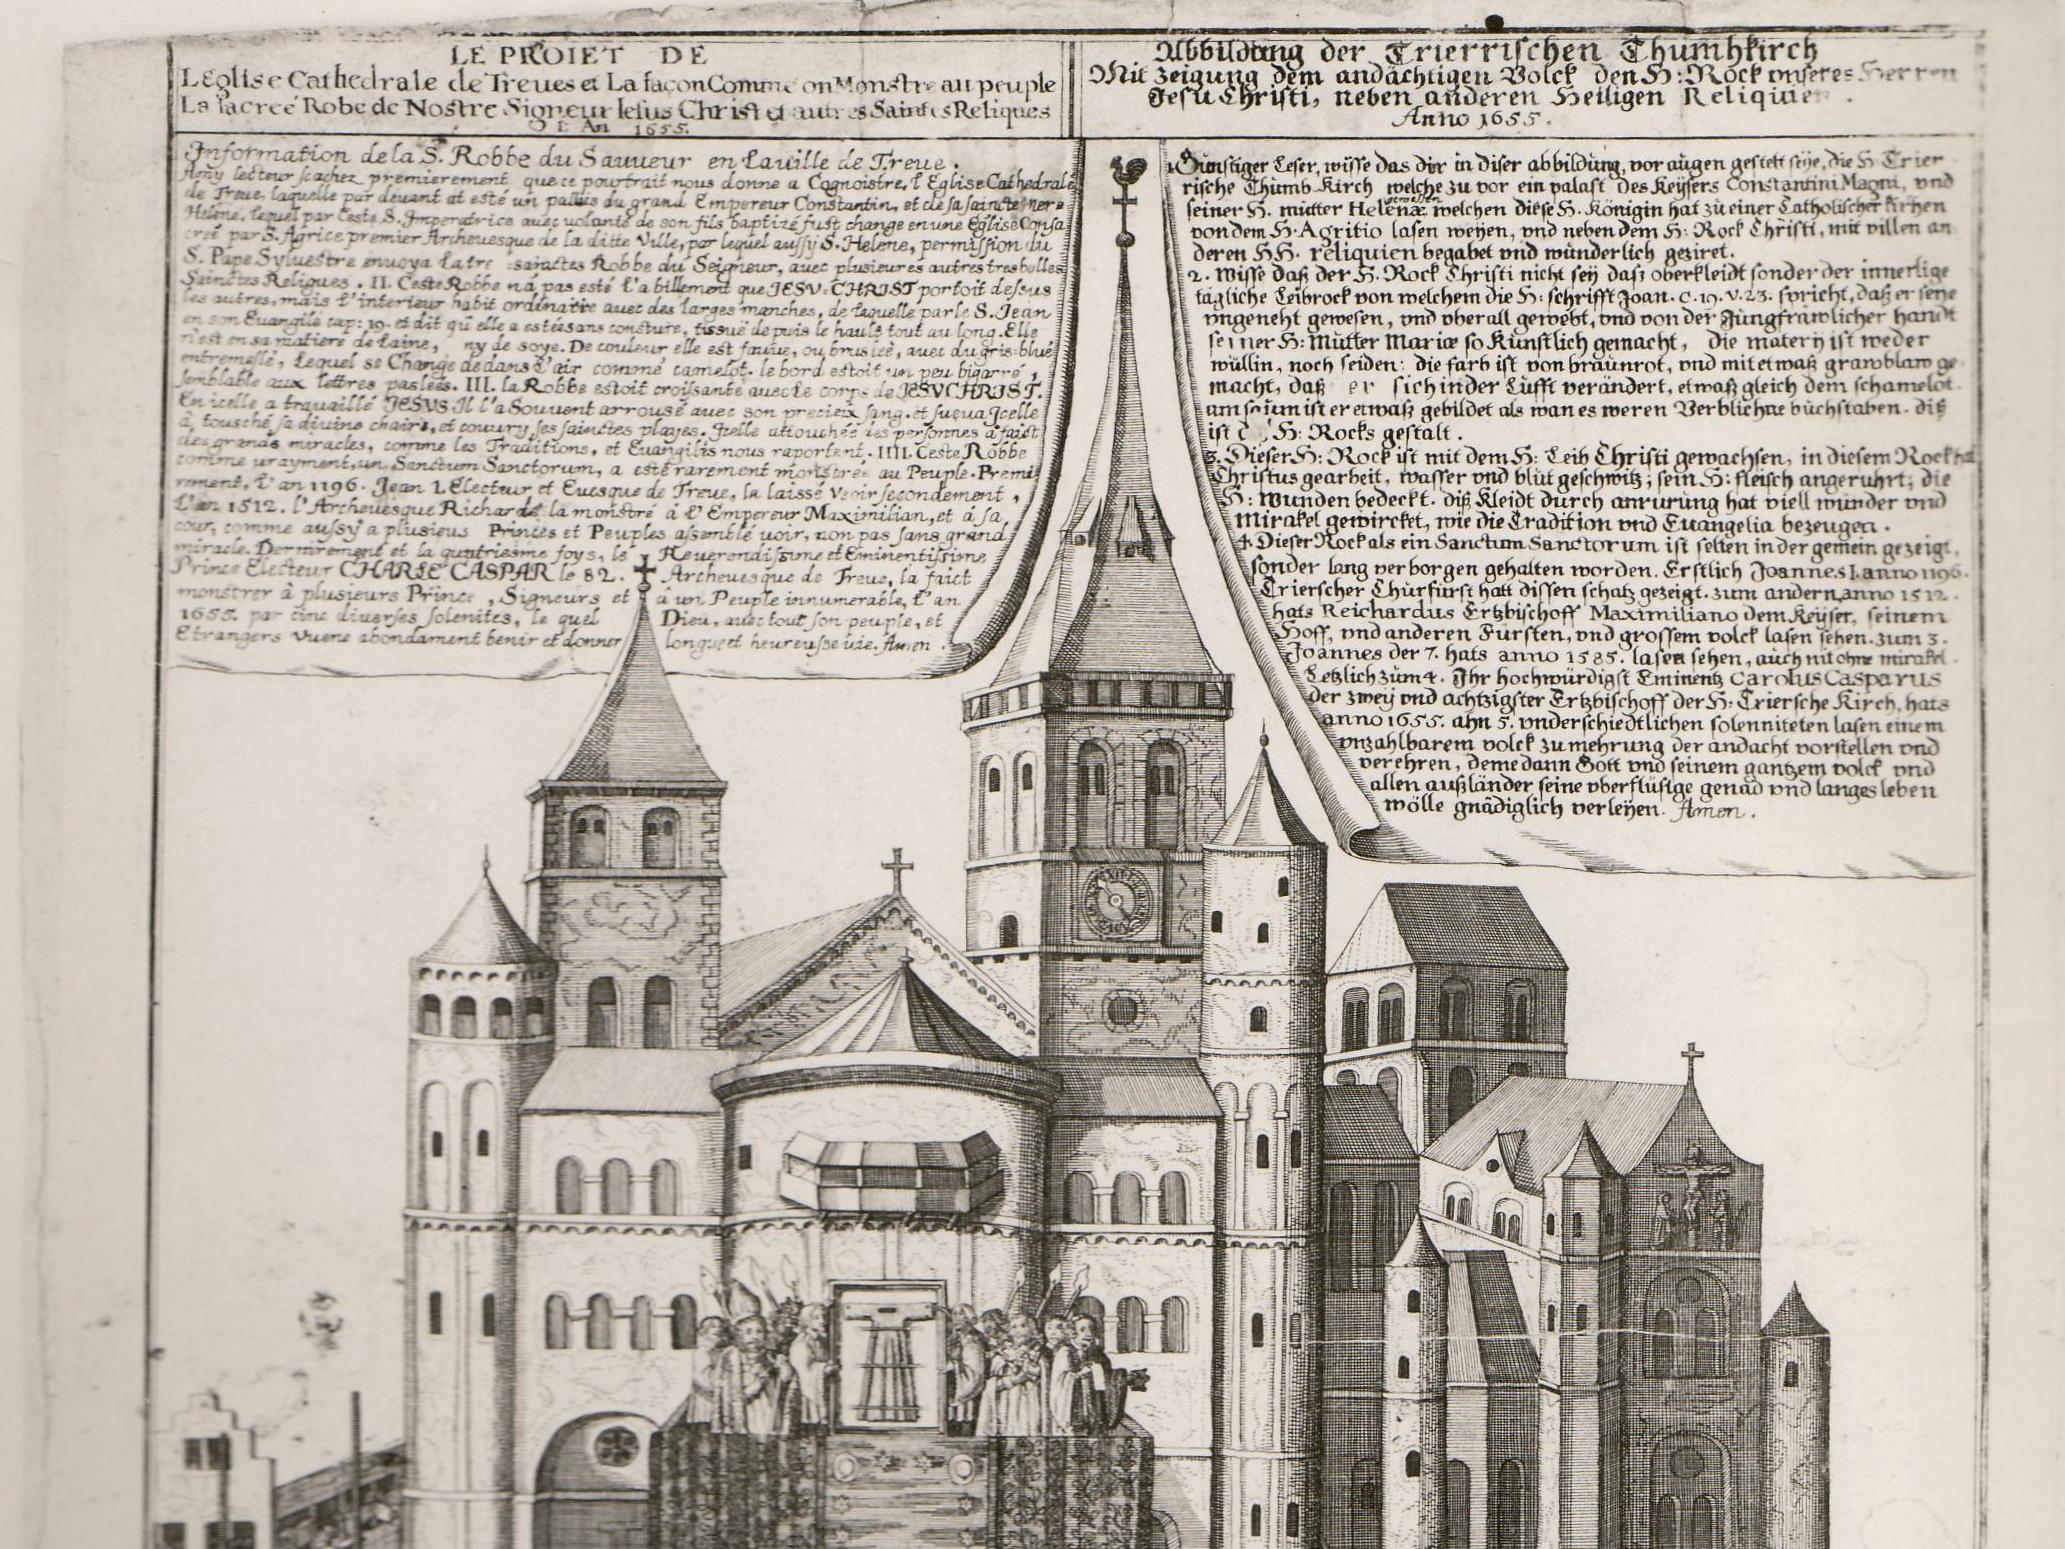 LE PROIET DE
L'Eglise Cathedrale de Treves et La façon Comme on Monstre au peuple
La sacrée Robe de Nostre Signeur Iesus Christ et autres Saintes Reliques
L'An 1655.
Information de la S. Robbe du Sauueur en Lauille de Treue.
Amy lecteur scachez premierement que ce pourtrait nous donne a Cognoistre, l'Eglise Cathedrale
de Treue, laquelle par deuant at esté un pallais du grand Empereur Constantin, et de sa saincte mere
Helene. lequel par ceste S. Imperatrice avec volante de son fils baptizé fust change en une Eglise Consa
creé par S. Agrice premier Archeuesque de la ditte Ville, par lequel aussy S. Helene, permission du
S. Pape Syluestre enuoya la tre sainctes Robbe du Seigneur, auec plusieures autres tresbelles
Sainctes Reliques. II. Ceste Robbe na pas esté l'abillement que JESV. CHRIST portoit dessus
les autres, mais l'interieur habit ordinaire avec des larges manches, de laquelle parle S. Jean
en son Euangile cap: 19. et dit qui elle a esteé sans consture, tissuë de puis le hault tout au long. Elle
n'est en sa matiere de Laine, ny de soye. De couleur elle est fauue, ou brusleé, avec du gris-blué
entremeslé, Lequel se Change dedans l'air comme camelot. le bord estoit un peu bigarré,
semblable aux lettres pasleés. III. la Robbe estoit croissante avec Le corps de JESVCHRIST.
En icelle a travaillé JESVS Il l'a Souvent arrousé avec son precieux sang. et sueur Icelle
à touché sa divine chaire, et couury ses sainctes playes. Icelle attoucheé des personnes a faict
des grands miracles, comme les Traditions, et Euangilis nous raportent. IIII. Ceste Robbe
comme urayment, un Sanctum Sanctorum, a esté rarement monstreé au Peuple. Premi
rement, L'an 1196. Jean I. Electeur et Euesque de Treue, la laissé veoir secondement,
L'an 1512. l'Archeuesque Richarde la monstré à l'Empereur Maximilian, et à sa
cour, comme aussy a plusieus Princes et Peuples assemblé voir, non pas sans grand
miracle. Dernirement et la quatriesme foys, le Reuerendissime et Eminentissime,
Prince Electeur CHARLE CASPAR le 82. Archeuesque de Treue, la faict
monstrer à plusieurs Prince, Signeurs et à un Peuple innumerable, L'an
1655. par cinc diuerses solenites, le quel Dieu, avec tout son peuple, et
Etrangers vuene abondament benir et donner longue et heureusse vie. Amen.
Abbildung der Trierrischen Thumhkirch
Mit Zeigung dem andächtigen Volck den H: Rock vnseres Herren
Jesu Christi, neben anderen Heiligen Reliquien.
Anno 1655.
1. Günstiger Leser, wisse das dir in diser abbildung, vor augen gestelt seÿe, die H. Trier
rische Thumb Kirch welche zu vor ein palast des Keÿsers Constantini Magni, vnd
seiner H. mutter Helenæ gewessen welchen diese H. Königin hat zu einer Catholischer Kirhen
von dem H. Agritio lasen weÿen, vnd neben dem H: Rock Christi, mit villen an
deren HH. reliquien begabet vnd wunderlich geziret.
2. Wisse daß der H. Rock Christi nicht seÿ das oberkleidt sonder der innerlige
tägliche Leibrock von welchem die H: schrifft Joan. c. 19. v. 23. spricht, daß er seÿe
vngeneht gewesen, vnd vber all gewebt, vnd von der Jungfrawlicher handt
seiner H: Mutter Mariæ so Künstlich gemacht, die matery ist weder
wüllin, noch seiden: die farb ist von bräunrot, vnd mit etwaß grawblaw ge
macht, daß er sich in der Lufft verändert, etwaß gleich dem schamelot.
am saum ist er etwaß gebildet als wan es weren Verblichne buchstaben. diß
ist H: Rocks gestalt.
3. Dieser H: Rock ist mit dem H: Leib Christi gewachsen, in diesem Rock hat
Christus gearbeit, wasser vnd blut geschwitz; sein H: fleisch angeruhrt; die
H: wunden bedeckt. diß Kleidt durch anrurung hat viell wunder vnd
mirakel gewircket, wie die Tradition vnd Euangelia bezeugen.
4. Dieser Rock als ein Sanctum Sanctorum ist selten in der gemein gezeigt,
sonder lang verborgen gehalten worden. Erstlich Joannes I. anno 1196.
Trierscher Churfürst hatt dissen schatz gezeigt. zum andern anno 1512.
hats Reichardus Ertzbischoff Maximiliano dem Keÿser, seinem
Hoff, vnd anderen Fürsten, vnd grossem volck lasen sehen. zum 3.
Joannes der 7. hats anno 1585. lasen sehen, auch nit ohne mirakel.
Letzlich zum 4. Ihr hochwürdigst Eminentz Carolus Casparus
der zweÿ vnd achtzigster Ertzbischoff der H: Triersche Kirch, hats
anno 1655. ahn 5. vnderschiedtlichen solenniteten lasen einem
vnzahlbarem volck zu mehrung der andacht vorstellen vnd
verehren, deme dann Gott vnd seinem gantzem volck vnd
allen außländer seine vberflüsige genad vnd langes leben
wölle gnädiglich verleÿen. Amen.